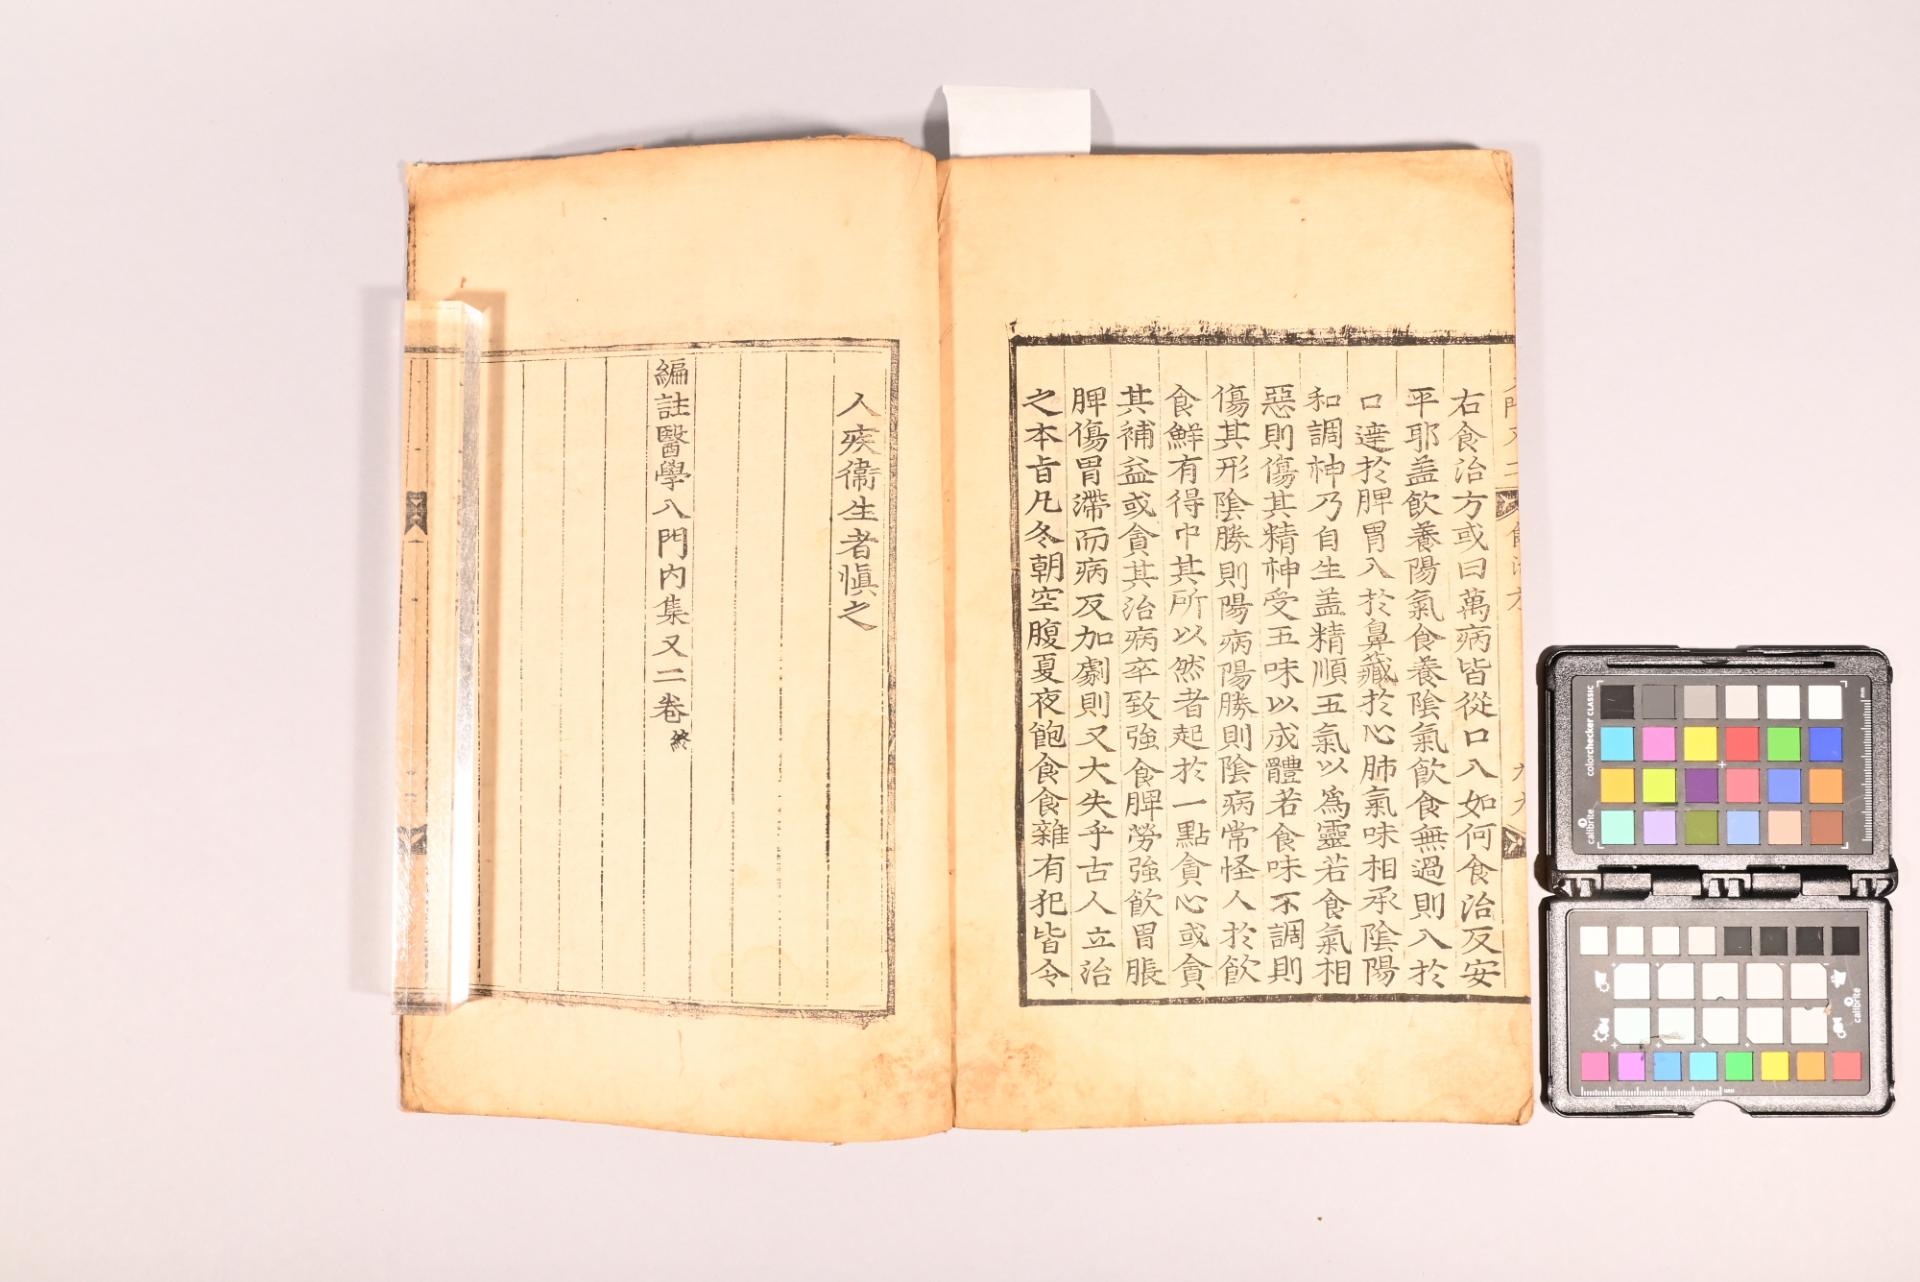 右食治方或曰萬病皆從口入如何食治反安
平耶盖飮養陽氣食養陰氣飮食無過則入於
口達於脾胃入於鼻藏於心肺氣味相承陰陽
和調神乃自生盖精順五氣以爲靈若食氣相
惡則傷其精神受五味以成體若食味不調則
傷其形陰勝則陽病陽勝則陰病常怪人於飮
食鮮有得中其所以然者起於一點貪心或貪
其補益或貪其治病卒致強食脾勞強飮胃脹
脾傷胃滯而病反加劇則又大失乎古人立治
之本旨凡冬朝空腹夏夜飽食食雜有犯皆令
人疾衛生者愼之
編註醫學入門内集又二卷終
colorchecker CLASSIC
calibrite
calibrite